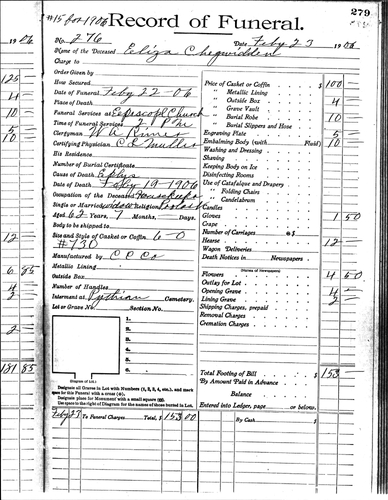 279
#15 for 1906 Record of Funeral.
No. 276 Date Feby 23 1906
Name of the Deceased Eliza Chegwidden
Charge to
Order Given by
How Secured
Date of Funeral Feby 22-06
Place of Death
Funeral Services at Episcopl Church
Time of Funeral Services 2 P.M.
Clergyman W A
Certifying Physician C E
His Residence
Number of Burial Certificate
Cause of Death
Date of Death Feby 19-1906
Occupation of the Deceased Housekeeper
Single or Married widow Religion
Aged 62 Years, 7 Months, Days
Body to be shipped to
Size and Style of Casket or Coffin 6-0
#730
Manufactured by C P Co
Metallic Lining
Outside Box
Number of Handles
Interment at Pythian Cemetery.
Lot or Grave No. Section No.
1.
2.
3.
4.
5.
6.
(Diagram of Lot.)
Designate all Graves in Lot with Numbers (1, 2, 3, 4, etc.), and mark
space for this Funeral with a cross (x).
Designate place for Monument with a small square
Use space to the right of Diagram for the names of those buried in Lot.
Price of Casket or Coffin $ 100
" Metallic Lining
" Outside Box 4
" Grave Vault
" Burial Robe 10
" Burial Slippers and Hose
Engraving Plate 5
Embalming Body (with Fluid) 10
Washing and Dressing
Shaving
Keeping Body on Ice
Disinfecting Rooms
Use of Catafalque and Drapery
" Folding Chairs
" Candelabrum
Candles
Gloves 1 50
Crape
Number of Carriages @ $
Hearse 12
Wagon Deliveries
Death Notices in Newspapers
(Names of Newspapers)
Flowers 4 50
Outlay for Lot
Opening Grave 4
Lining Grave 2
Shipping Charges, prepaid
Removal Charges
Cremation Charges
Total Footing of Bill $ 153
By Amount Paid in Advance
Balance
Entered into Ledger, page or below.
Feby 23 To Funeral Charges Total, $ 153 00 By Cash $
1906
125
4
10
5
10
12
6 85
4
2
2
181 85